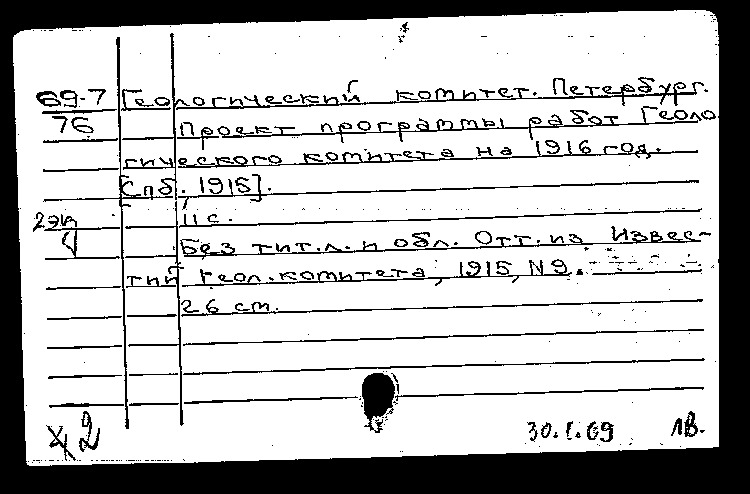 69-7 Геологический комитет. Петербург.
76 Проект программы работ Геоло
гического комитета на 1916 год.
[Спб, 1915].
2 экз 11 с.
Без тит. л. и обл. Отт. из Извес-
тий Геол. комитета, 1915, N9.
26 см.
2 30.I.69 ЛВ.